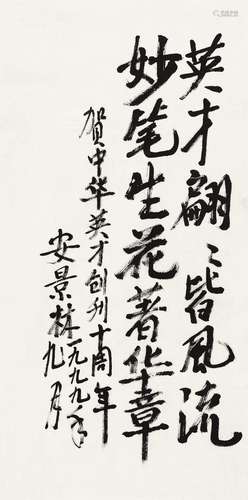 英才翩〻皆风流
妙笔生花著华章
贺中华英才创刊十周年
安景林一九九九年九月